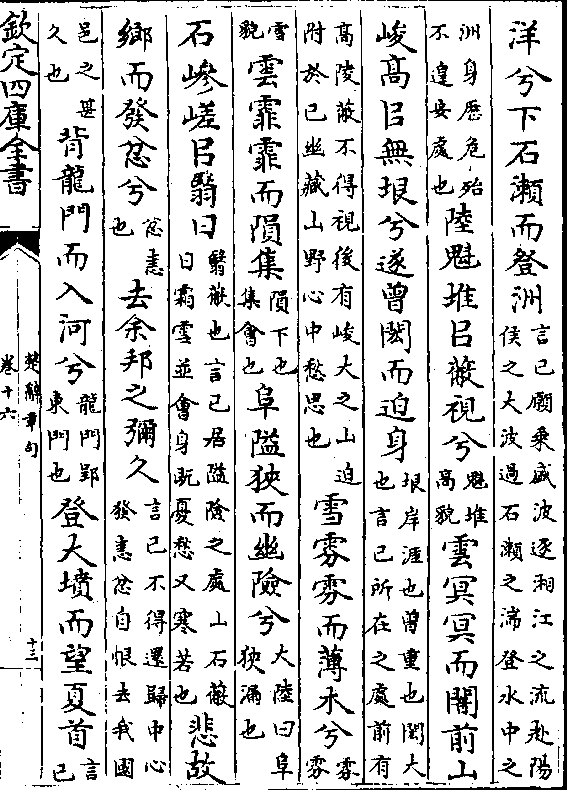 洋兮下石瀬而登洲言己願乗盛波逐湘江之流赴陽侯之大波過石瀬之湍登水中之
洲身歴危殆不遑安處也陸魁堆㠯蔽視兮魁堆髙貌雲冥冥而闇前山
峻髙㠯無垠兮遂曾閎而迫身垠岸涯也曾重也閎大也言己所在之處前有
髙陵蔽不得視後有峻大之山迫附於己幽藏山野心中愁思也雪雰雰而薄木兮雰
雪貌雲霏霏而隕集隕下也集㑹也阜隘狹而幽險兮大陸曰阜狹漏也
石嵾嵯㠯翳日翳蔽也言己居隘險之處山石蔽日霜雪並㑹身既憂愁又寒苦也悲故
鄉而發忿兮忿恚也去余邦之彌久言己不得還歸中心發恚忿自恨去我國
邑之甚久也背龍門而入河兮龍門郢東門也登大墳而望夏首言己
欽定四庫全書
楚辭章句
卷十六
十三